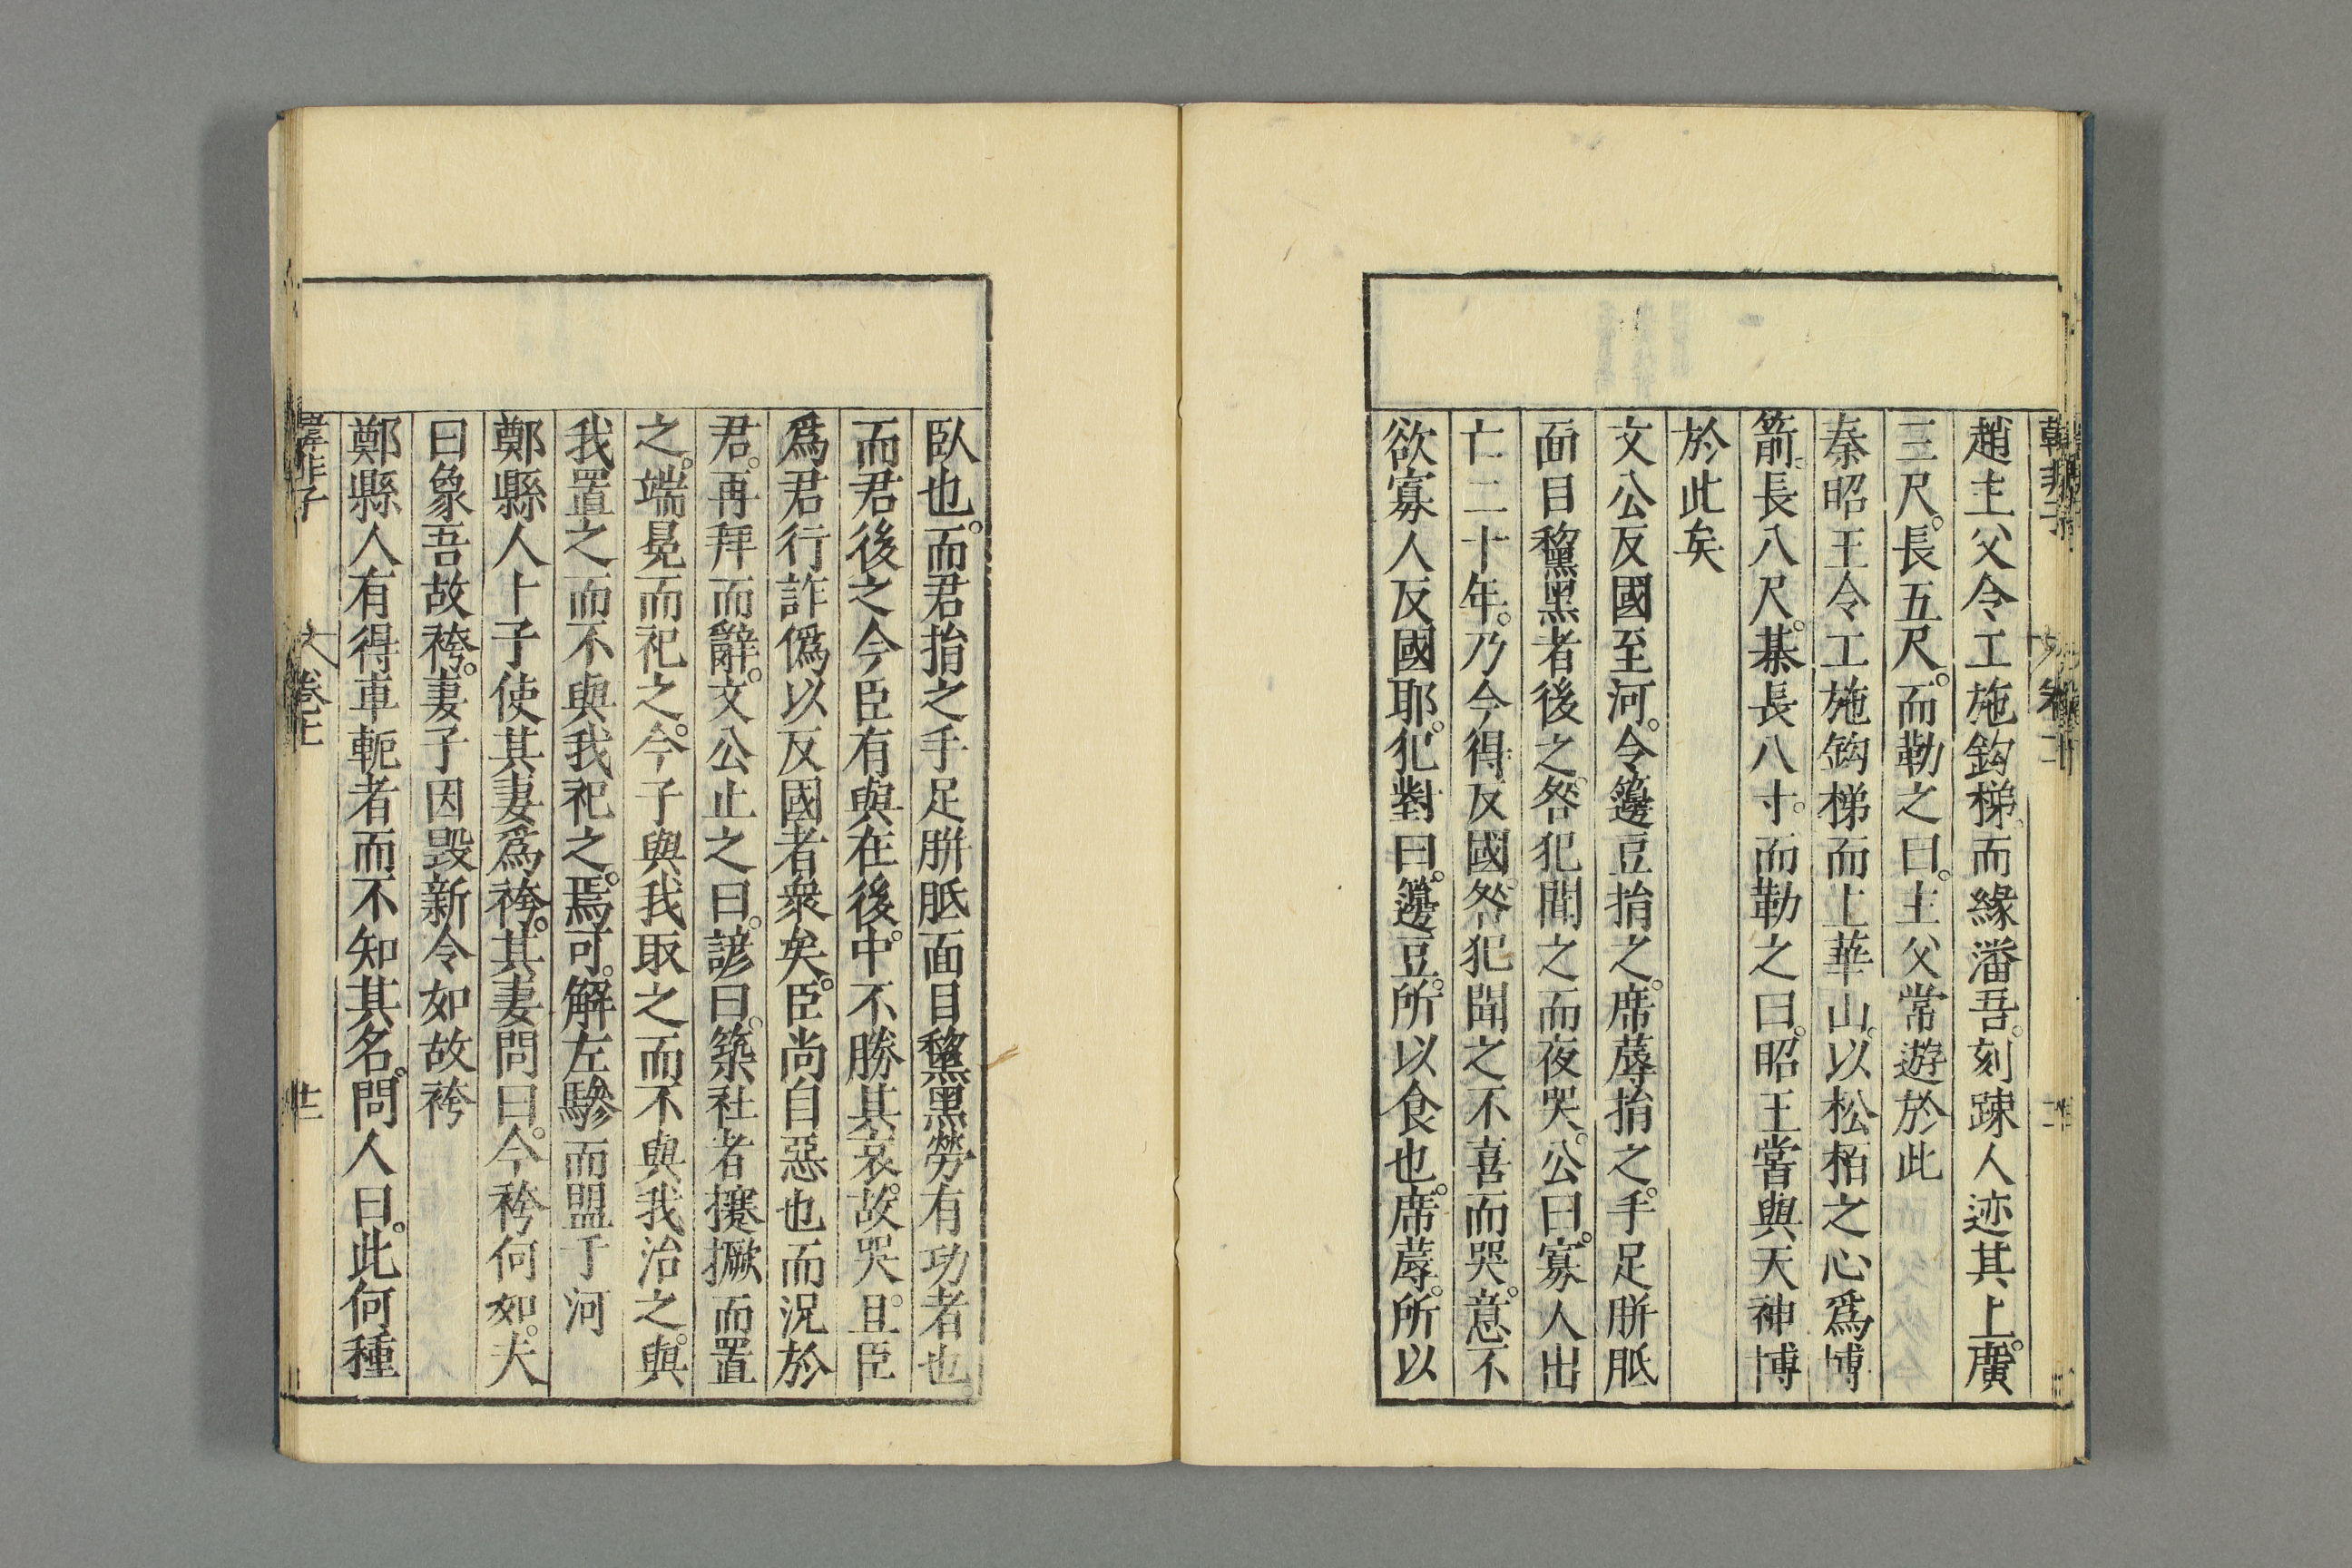 趙主父令工施鈎梯。而緣潘吾。刻踈人迹其上。廣
三尺。長五尺。而勒之曰。主父常遊於此
秦昭王令工施鈎梯而上華山。以松柏之心爲博
箭。長八尺。棊長八寸。而勒之曰。昭王嘗與天神博
於此矣
文公反國至河。令籩豆捐之。席蓐捐之。手足胼胝
面目黧黑者後之。咎犯聞之而夜哭。公曰。寡人出
亡二十年。乃今得反國。咎犯聞之不喜而哭。意不
欲寡人反國耶。犯對曰。籩豆。所以食也。席蓐。所以
臥也。而君捐之手足胼胝面目黧黑勞有功者也。
而君後之今臣有與在後。中不勝其哀。故哭。且臣
爲君行詐僞以反國者衆矣。臣尚自惡也而況於
君。再拜而辭。文公止之曰。諺曰。築社者攓撅而置
之。端冕而祀之。今子與我取之而不與我治之。與
我置之而不與我祀之。焉可。解左驂而盟于河
鄭縣人卜子使其妻爲袴。其妻問曰。今袴何如。夫
曰象吾故袴。妻子因毀新令如故袴
鄭縣人有得車軛者而不知其名。問人曰。此何種